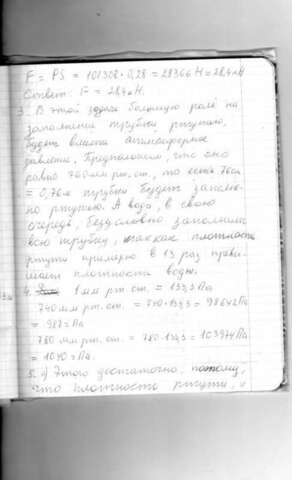 F = PS = 101308·0,28 = 28366 Н = 28,4 кН
Ответ: F = 28,4 кН.
3. В этой задаче большую роль на
заполнении трубки ртутью,
будет влиять атмосферное
давление. Предположим, что оно
равно 760 мм рт. ст., то есть 76см
= 0,76м трубки будет заполне-
но ртутью. А вода, в свою
очередь, безусловно заполнит
всю трубку, так как плотность
ртути примерно в 13 раз превы-
шает плотность воды.
4. 1 мм рт. ст. = 133,3 Па
740 мм рт. ст. = 740·133,3 = 98642 Па
= 987 Па
780 мм рт. ст. = 780·133,3 = 103974 Па
= 1040 Па.
5. а) Этого достаточно, потому,
что плотность ртути,